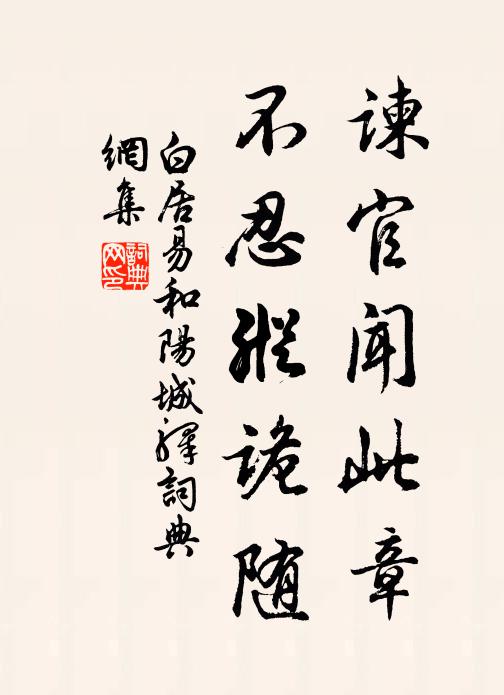 諫官聞此章
不忍縱詭随
白居易和陽城驛詞典
網集
詞典網印